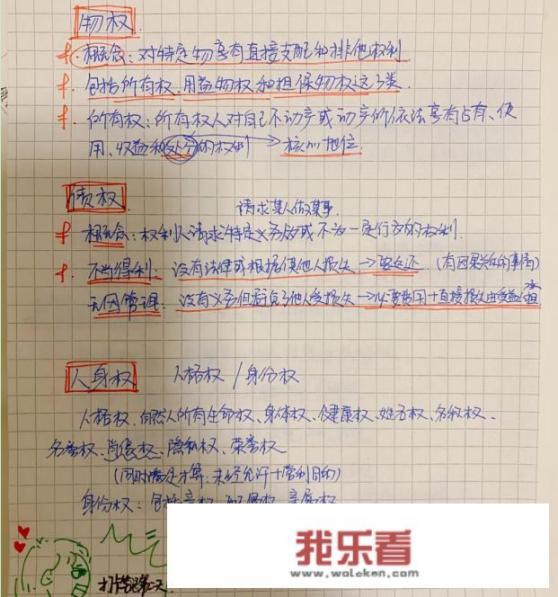 物权
概念：对特定物享有直接支配和排他权利
包括所有权、用益物权和担保物权这3类
所有权：所有权人对自己不动产或动产的依法享有占有、使
用、收益和处分的权利 → 核心地位
债权
请求某人做某事
概念：权利人请求特定义务为或不为一定行为的权利
不当得利：没有法律或根据使他人损失 → 要返还 (有因果关系的事情)
无因管理：没有义务但避免了他人受损失 → 必要费用+直接损失由受益人
人身权 人格权/身份权
人格权：自然人所有生命权、身体权、健康权、姓名权、名称权、
名誉权、肖像权、隐私权、荣誉权
(同时满足才算：未经允许+营利目的)
身份权：包括亲权、配偶权、亲属权
打
我乐看
www.woleken.com